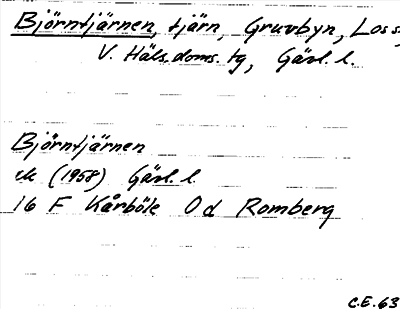 Björntjärnen, tjärn, Gruvbyn, Loss,
V. Häls. doms. tg, Gävl. l.
Björntjärnen
ek (1958) Gävl. l.
16 F Kårböle Od Romberg
C.E. 63